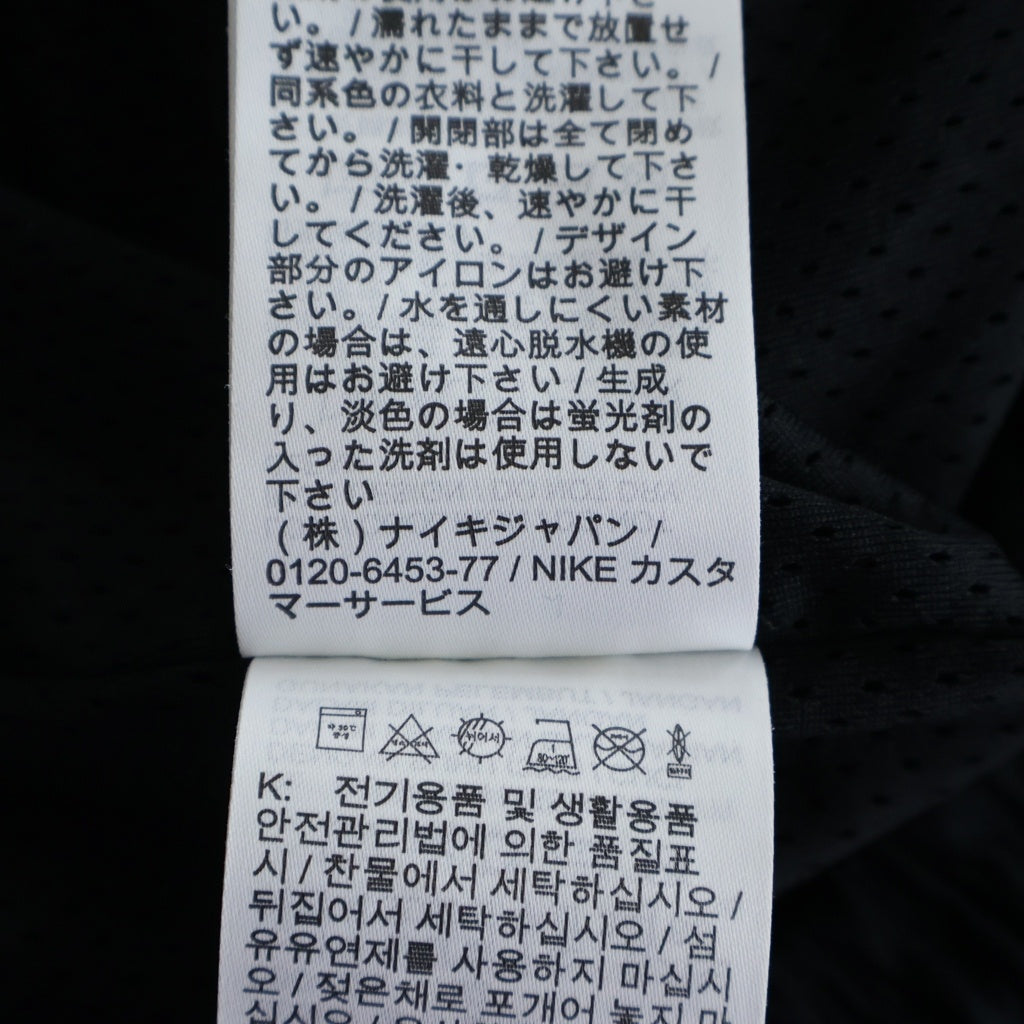 い。/濡れたままで放置せ
ず速やかに干して下さい。/
同系色の衣料と洗濯して下
さい。/開閉部は全て閉め
てから洗濯・乾燥して下さ
い。/洗濯後、速やかに干
してください。/デザイン
部分のアイロンはお避け下
さい。/水を通しにくい素材
の場合は、遠心脱水機の使
用はお避け下さい/生成
り、淡色の場合は蛍光剤の
入った洗剤は使用しないで
下さい
(株)ナイキジャパン/
0120-6453-77 / NIKE カスタ
マーサービス
약 30℃ 중성
80~120℃
K: 전기용품 및 생활용품
안전관리법에 의한 품질표
시 / 찬물에서 세탁하십시오 /
뒤집어서 세탁하십시오 / 섬
유유연제를 사용하지 마십시
오 / 젖은채로 포개어 놓지